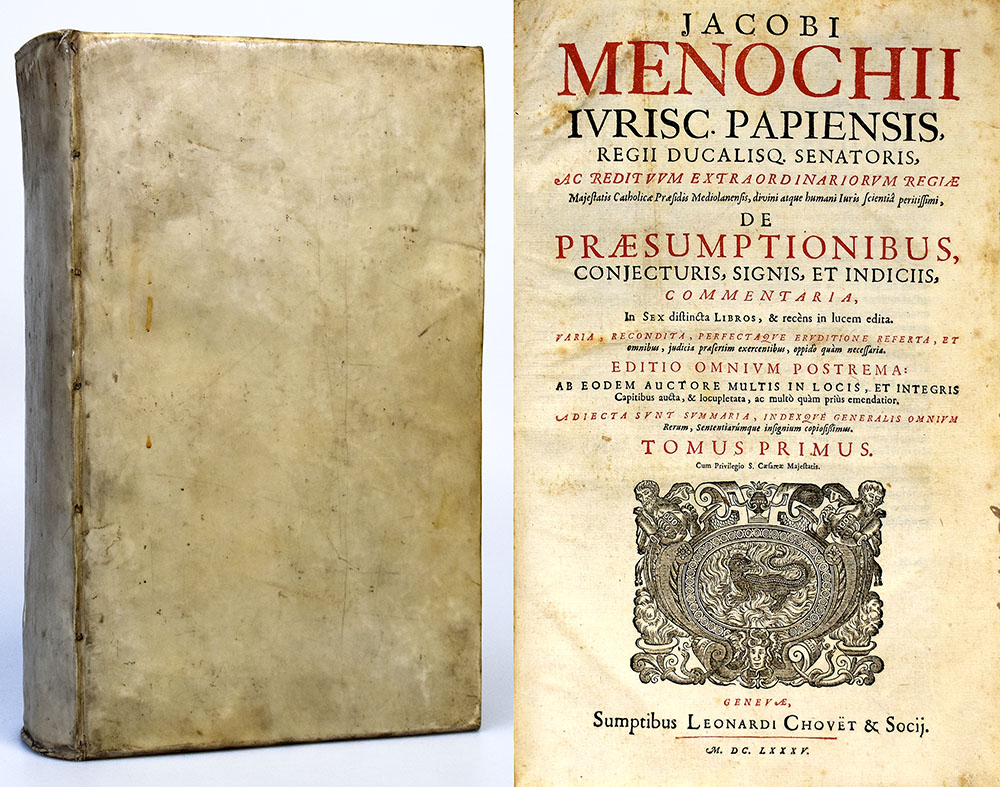 JACOBI
MENOCHII
IVRISC. PAPIENSIS,
REGII DUCALISQ. SENATORIS,
AC REDITVVM EXTRAORDINARIORVM REGIÆ
Majeſtatis Catholicæ Præſidis Mediolanenſis, divini atque humani Iuris ſcientiâ peritiſſimi,
DE
PRÆSUMPTIONIBUS,
CONJECTURIS, SIGNIS, ET INDICIIS,
COMMENTARIA,
In SEX diſtincta LIBROS, & recèns in lucem edita.
VARIA, RECONDITA, PERFECTAQVE ERVDITIONE REFERTA, ET
omnibus, judicia præſertim exercentibus, oppidò quàm neceſſaria.
EDITIO OMNIVM POSTREMA:
AB EODEM AUCTORE MULTIS IN LOCIS, ET INTEGRIS
Capitibus aucta, & locupletata, ac multò quàm priùs emendatior.
ADIECTA SVNT SVMMARIA, INDEXQVE GENERALIS OMNIVM
Rerum, Sententiarúmque inſignium copioſiſſimus.
TOMUS PRIMUS.
Cum Privilegio S. Cæſareæ Majeſtatis.
GENEVÆ,
Sumptibus LEONARDI CHOVËT & Socij.
M. DC. LXXXV.